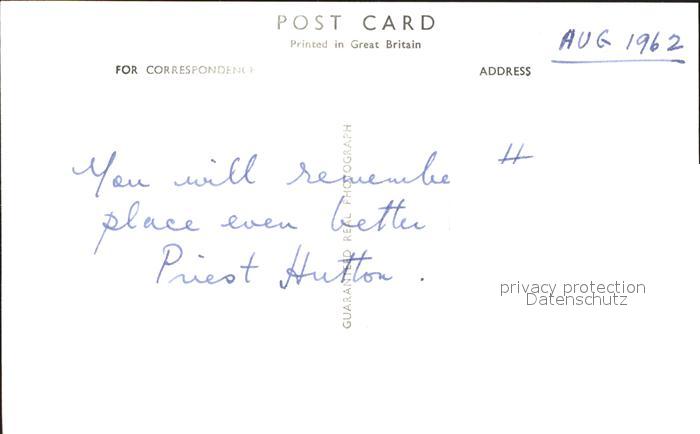 POST CARD
Printed in Great Britain
AUG 1962
FOR CORRESPONDENCE
ADDRESS
You will remembe
place even better
Priest Hutton .
GUARANTEED REAL PHOTOGRAPH
privacy protection
Datenschutz